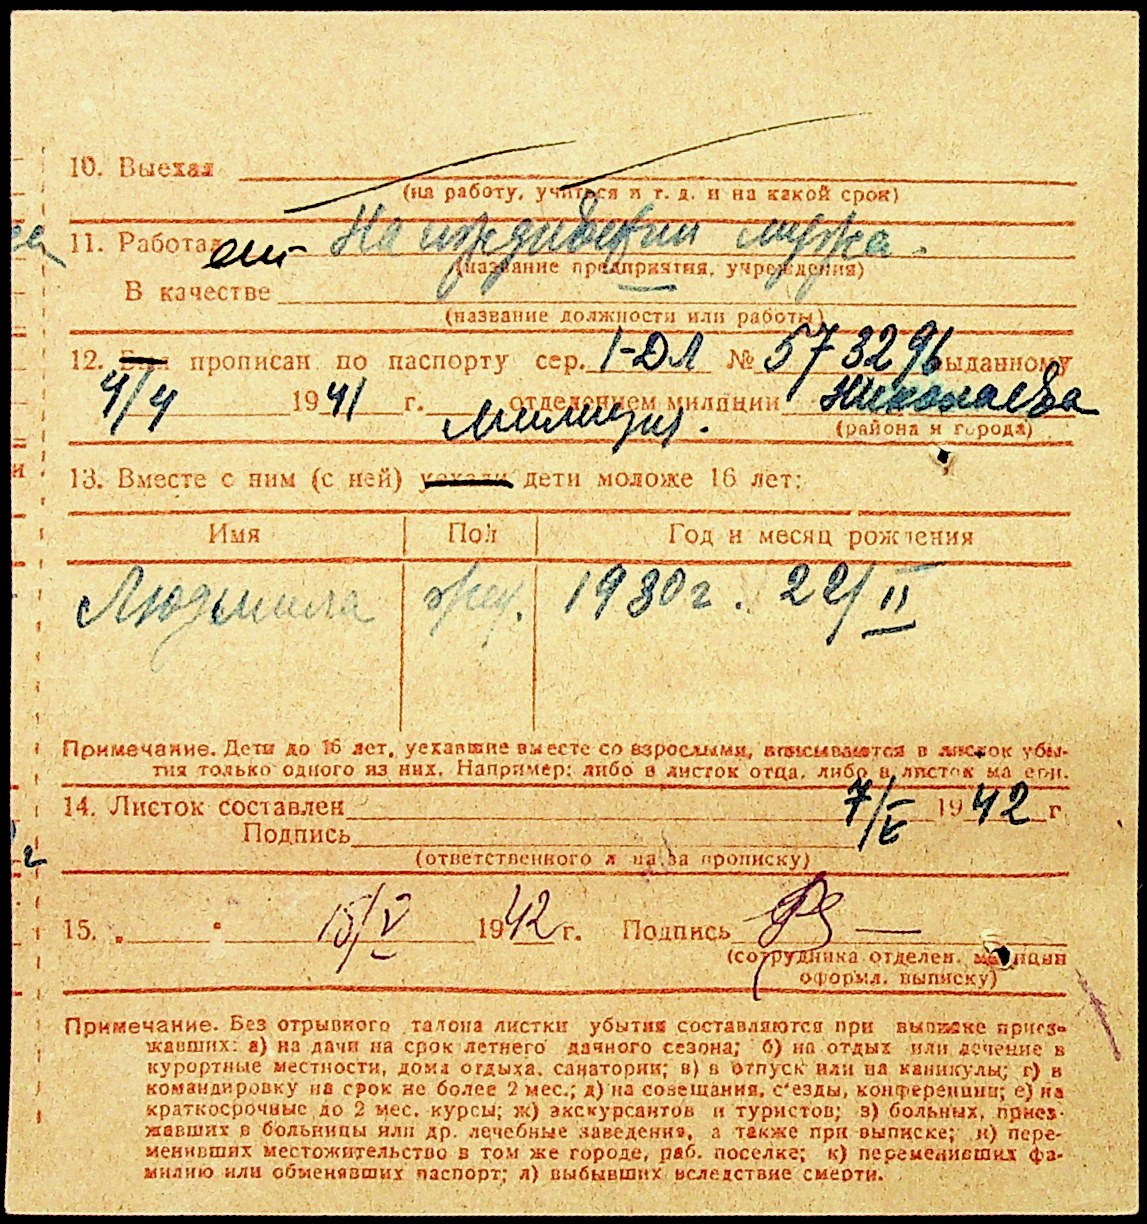 10. Выехал
(на работу, учиться и т. д. и на какой срок)
11. Работает На иждивении мужа.
(название предприятия, учреждения)
В качестве
(название должности или работы)
12. Был прописан по паспорту сер. I-ДЛ № 573296 выданному
4/4 1941 г. отделением милиции Николаева
милиции.
(района и города)
13. Вместе с ним (с ней) уехали дети моложе 16 лет:
Имя Пол Год и месяц рождения
Людмила жен. 1930 г. 22/II
Примечание. Дети до 16 лет, уехавшие вместе со взрослыми, вписываются в листок убы-
тия только одного из них. Например: либо в листок отца, либо в листок матери.
14. Листок составлен 7/V 1942 г.
Подпись
(ответственного лица за прописку)
15. „ “ 15/V 1942 г. Подпись
(сотрудника отделен. милиции
оформл. выписку)
Примечание. Без отрывного талона листки убытия составляются при выписке приез-
жавших: а) на дачи на срок летнего дачного сезона; б) на отдых или лечение в
курортные местности, дома отдыха, санатории; в) в отпуск или на каникулы; г) в
командировку на срок не более 2 мес.; д) на совещания, с'езды, конференции; е) на
краткосрочные до 2 мес. курсы; ж) экскурсантов и туристов; з) больных, приез-
жавших в больницы или др. лечебные заведения, а также при выписке; и) пере-
менивших местожительство в том же городе, раб. поселке; к) переменивших фа-
милию или обменявших паспорт; л) выбывших вследствие смерти.